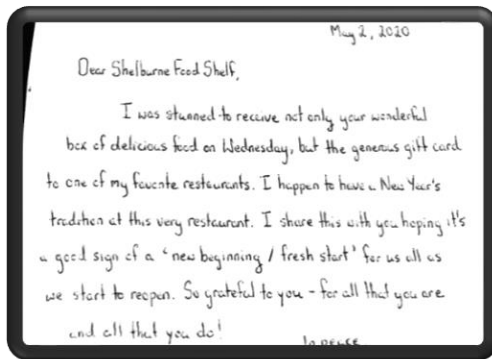 May 2, 2020
Dear Shelburne Food Shelf,
I was stunned to receive not only your wonderful
box of delicious food on Wednesday, but the generous gift card
to one of my favorite restaurants. I happen to have a New Year's
tradition at this very restaurant. I share this with you hoping it's
a good sign of a "new beginning / fresh start" for us all as
we start to reopen. So grateful to you - for all that you are
and all that you do!
In peace